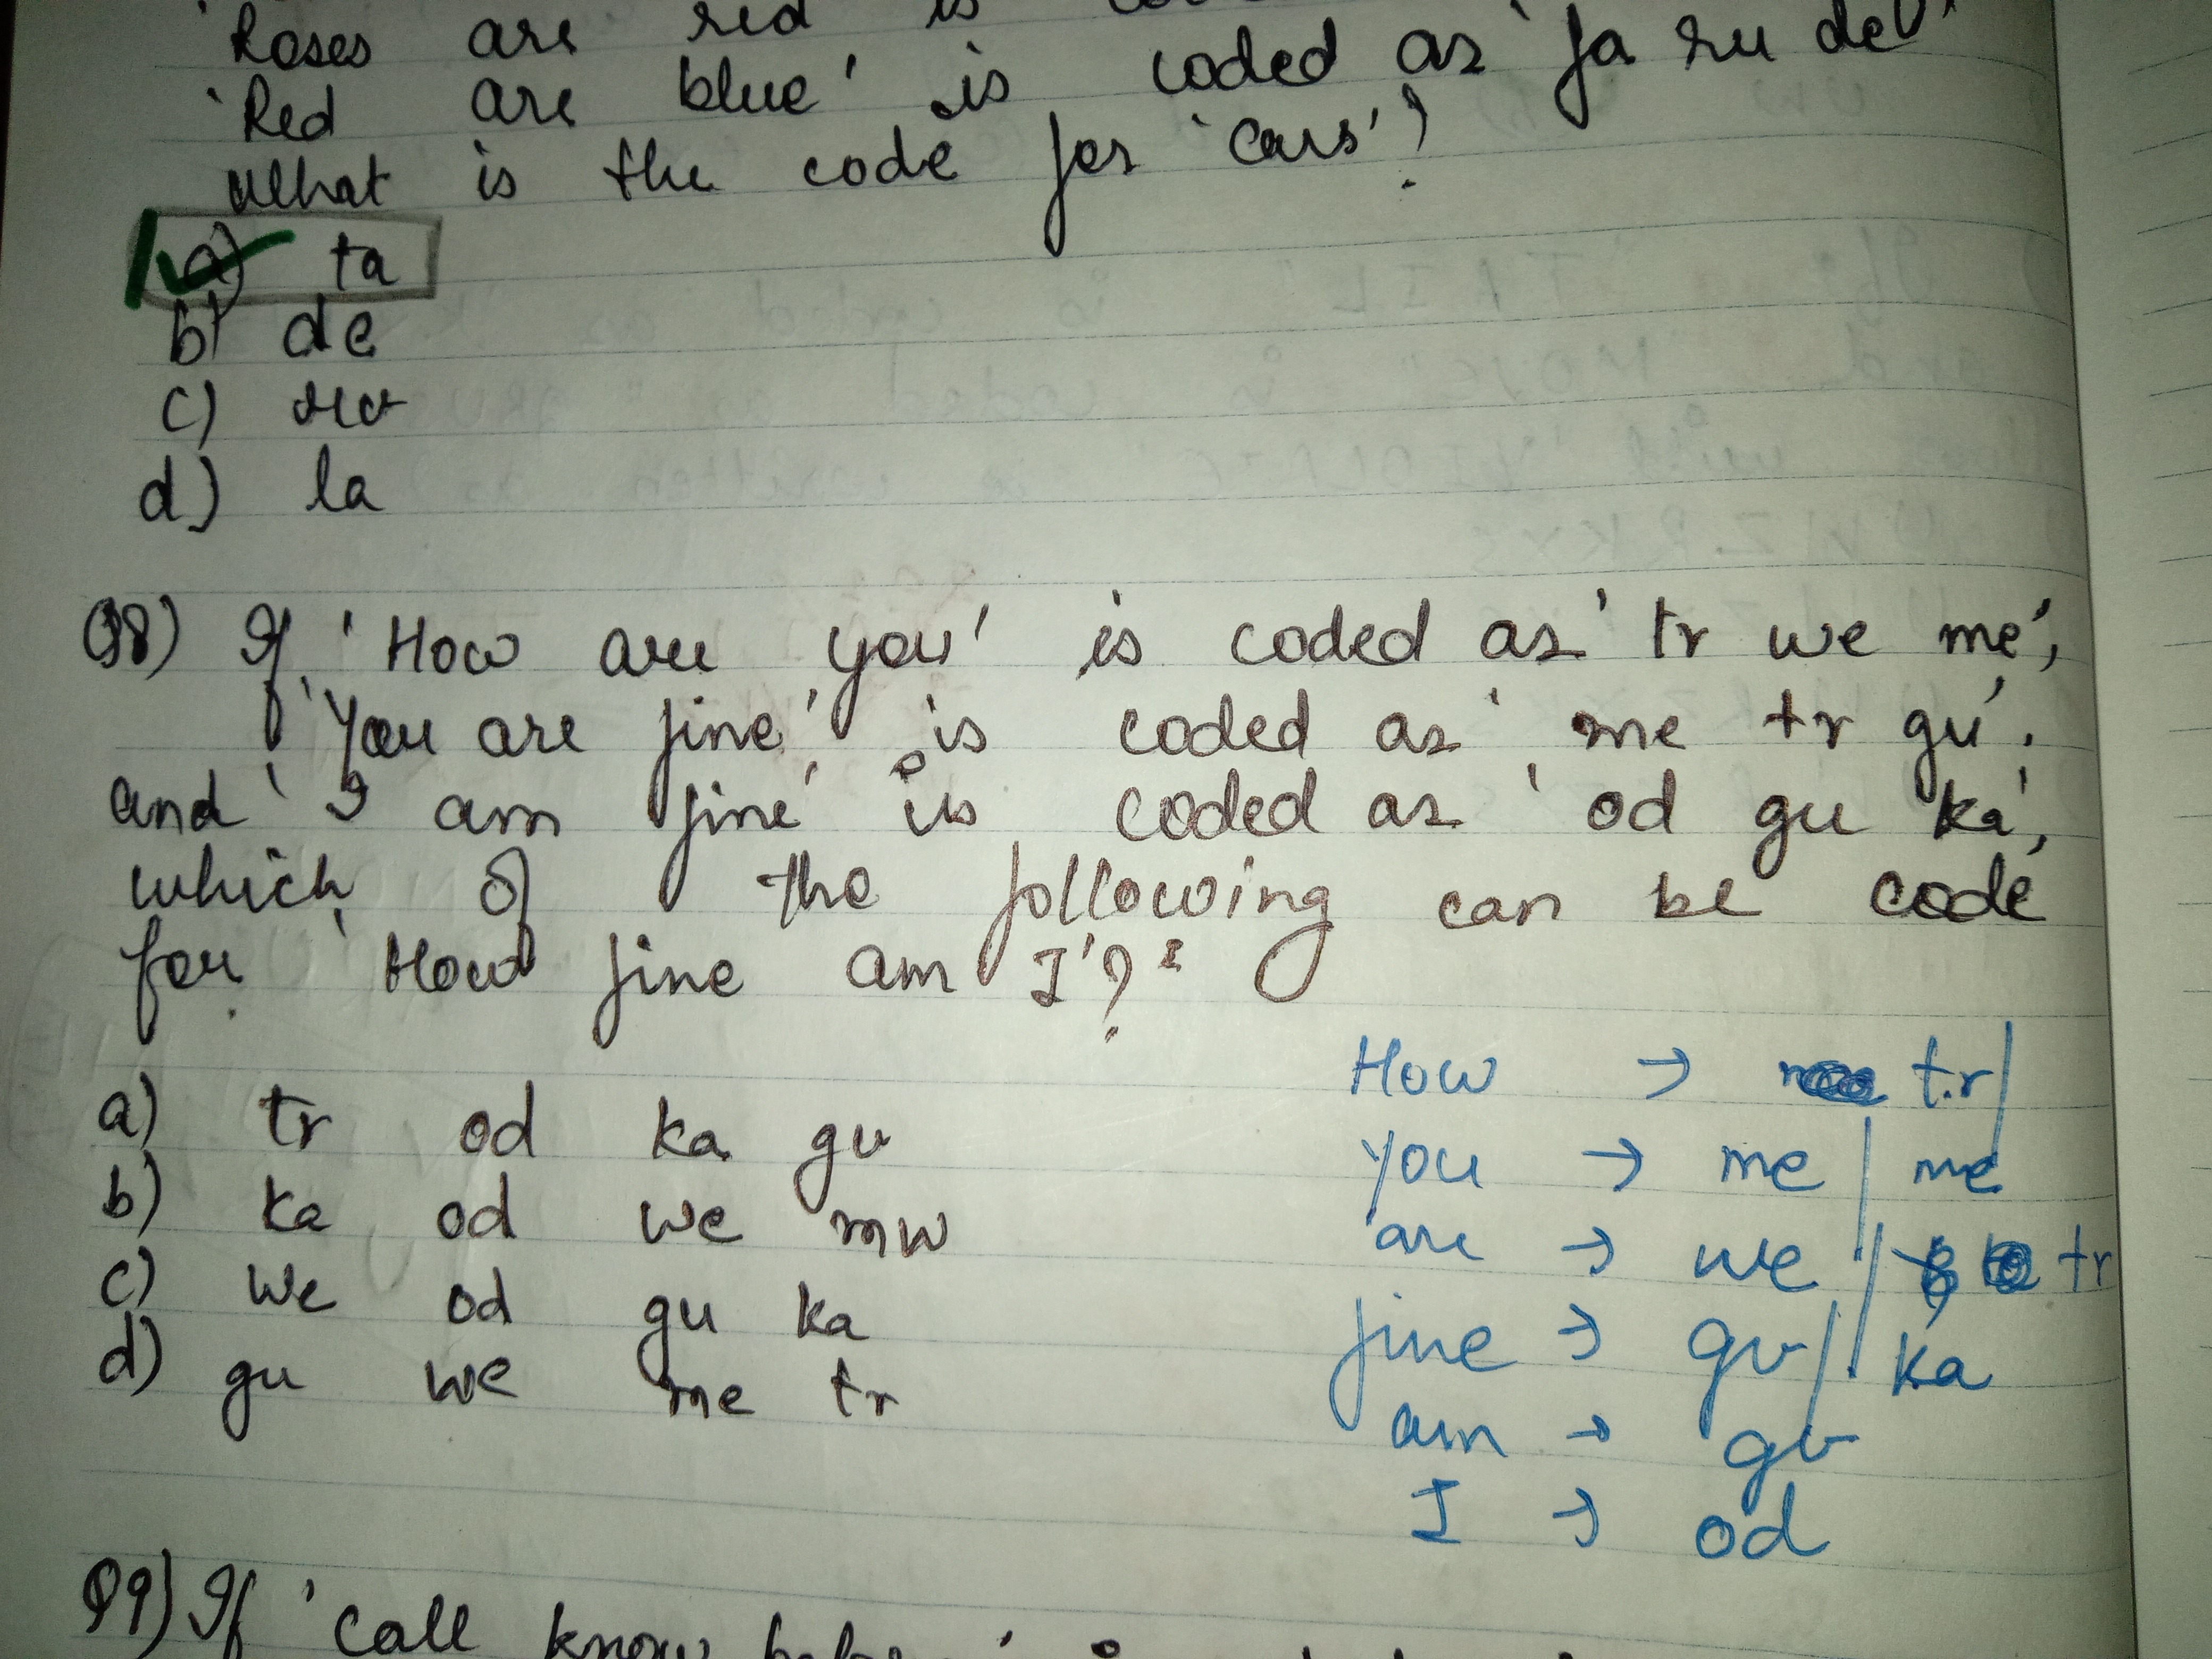 Roses are red is
'Red are blue' is coded as 'fa ru de'
What is the code for 'cars'?
a) ta
b) de
c) ru
d) la
Q8) If 'How are you' is coded as 'tr we me',
'You are fine' is coded as 'me tr gu'.
and 'I am fine' is coded as 'od gu ka',
which of the following can be code
for 'How fine am I'?
a) tr od ka gu
b) ka od we mw
c) we od gu ka
d) gu we me tr
How → tr
you → me | me
are → we | tr
fine → gu | ka
am → gu
I → od
Q9) If 'Call know